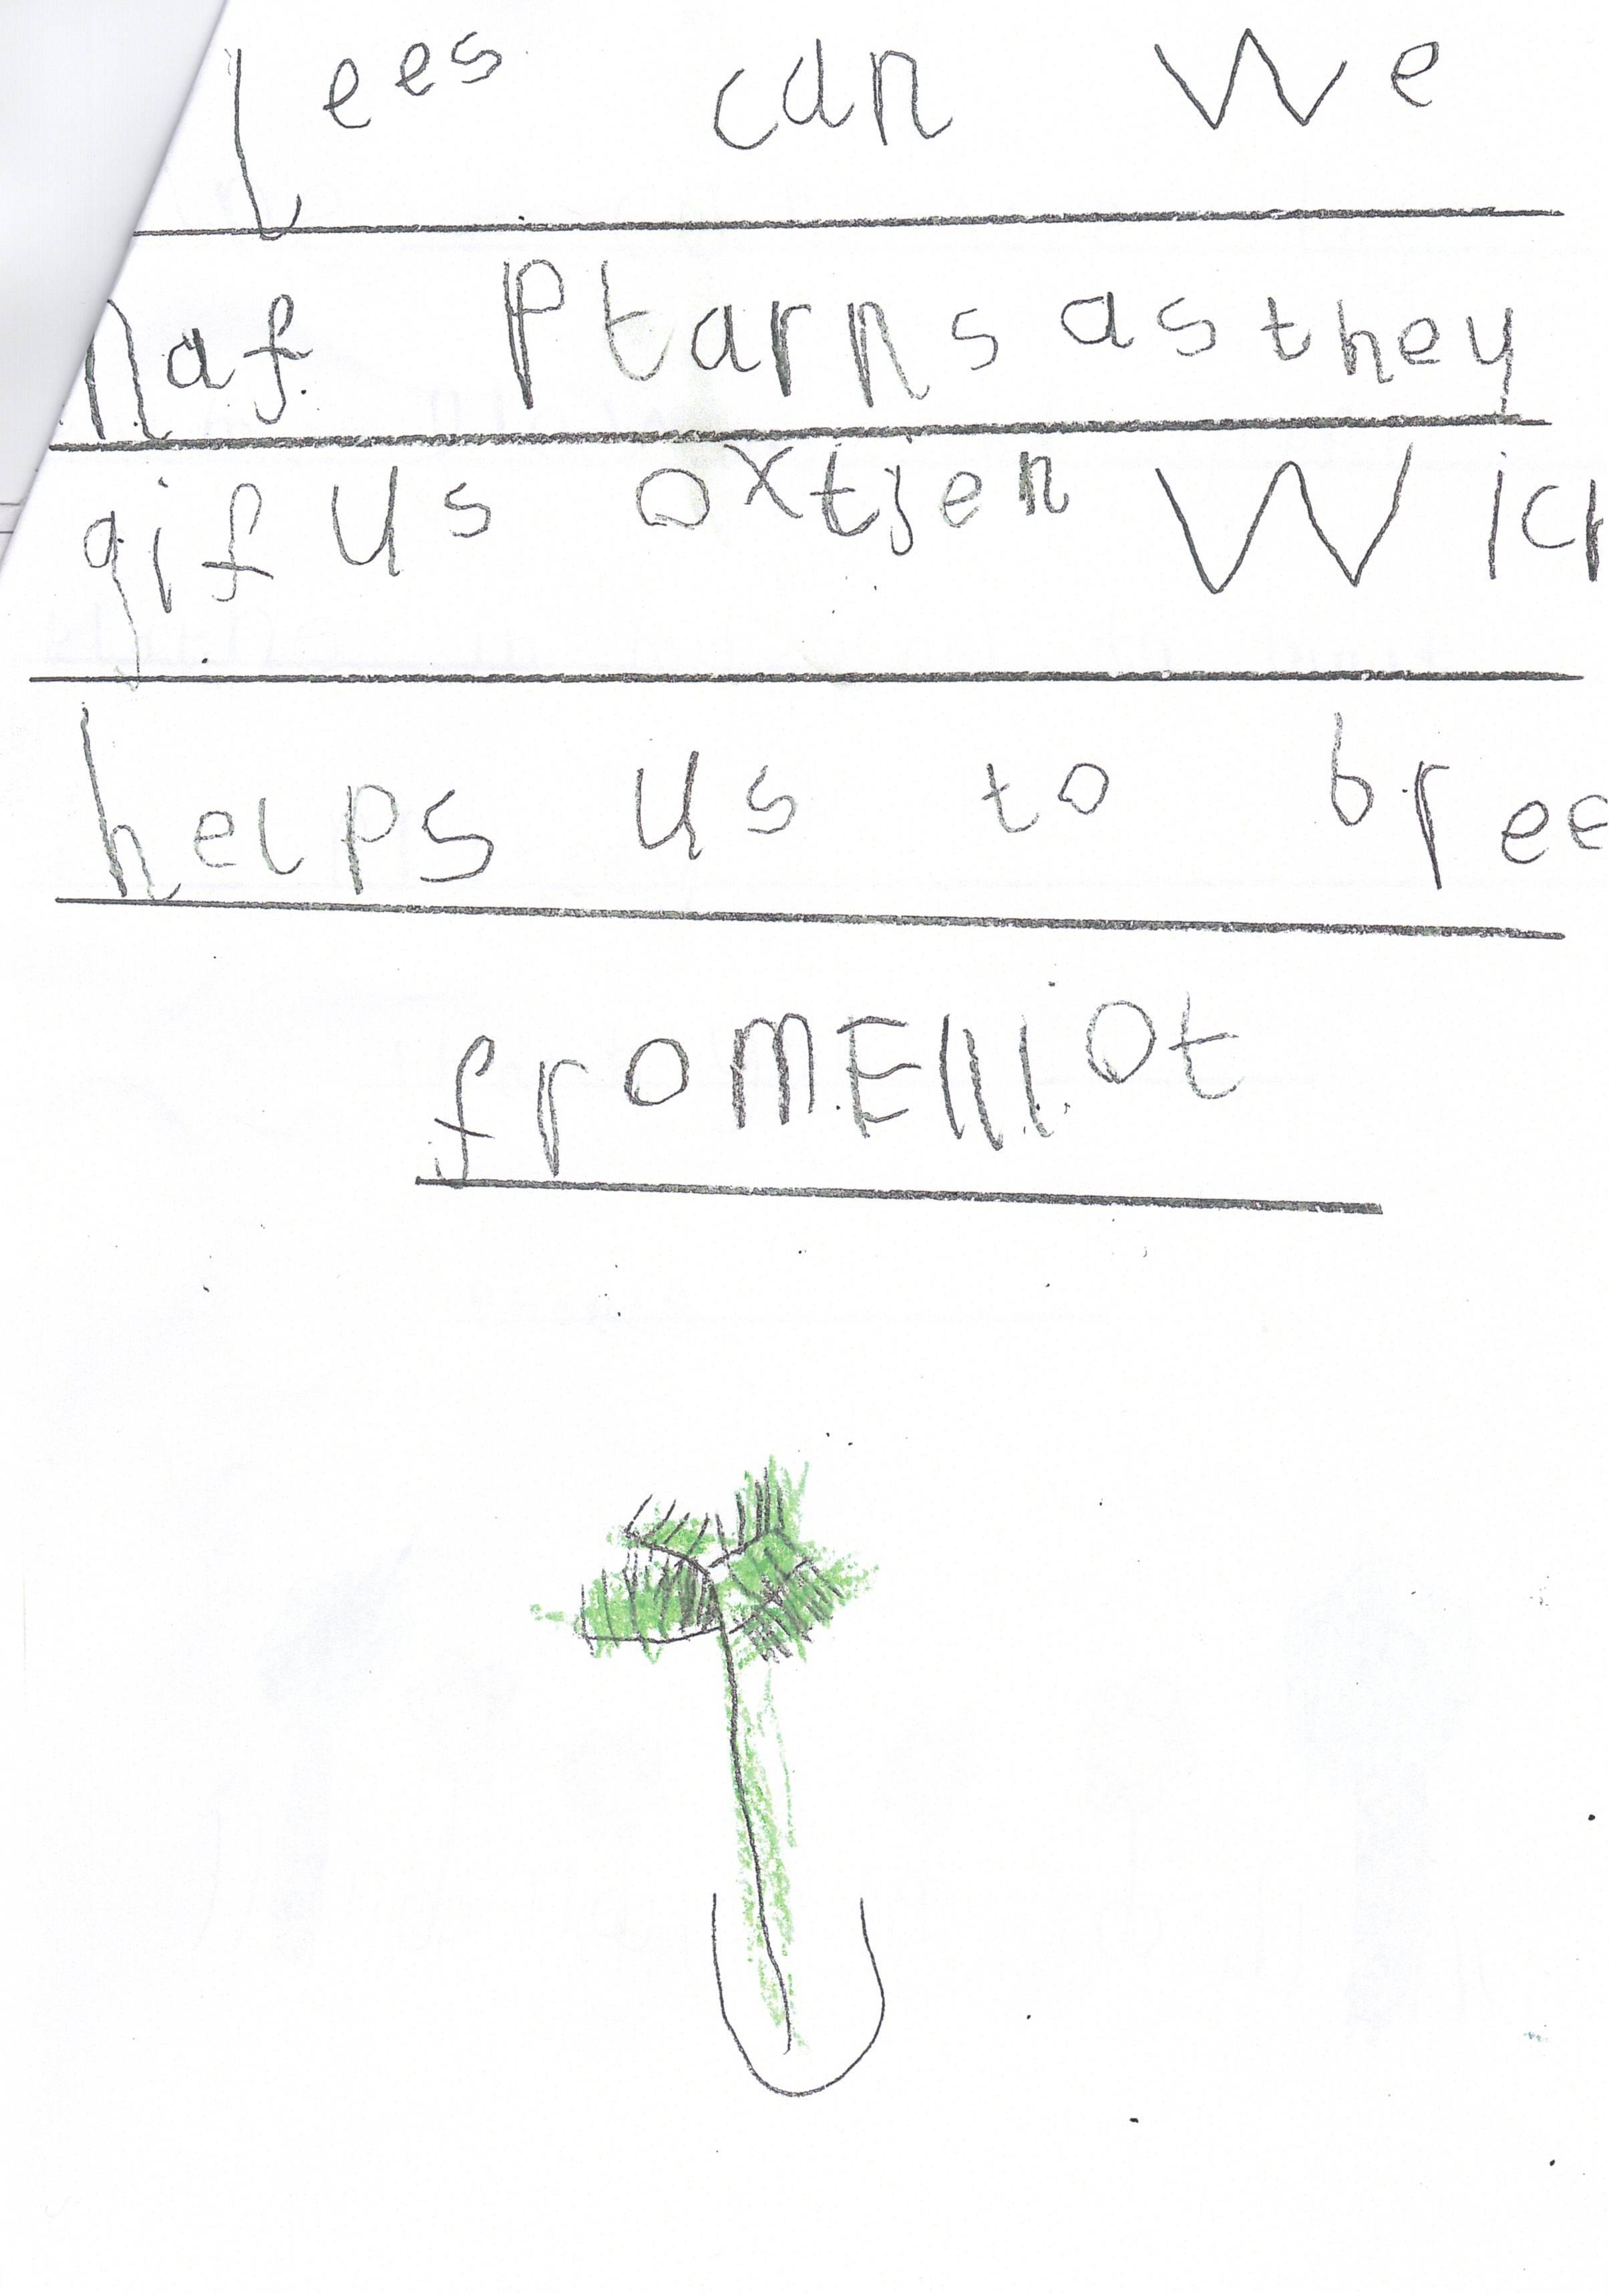 lees can We
haf Ptarns as they
gif us oxtjen Wich
helps us to bree
from Elliot